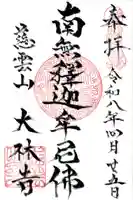 奉拝
令和八年四月廿五日
南無釋迦牟尼佛
慈雲山
大林寺